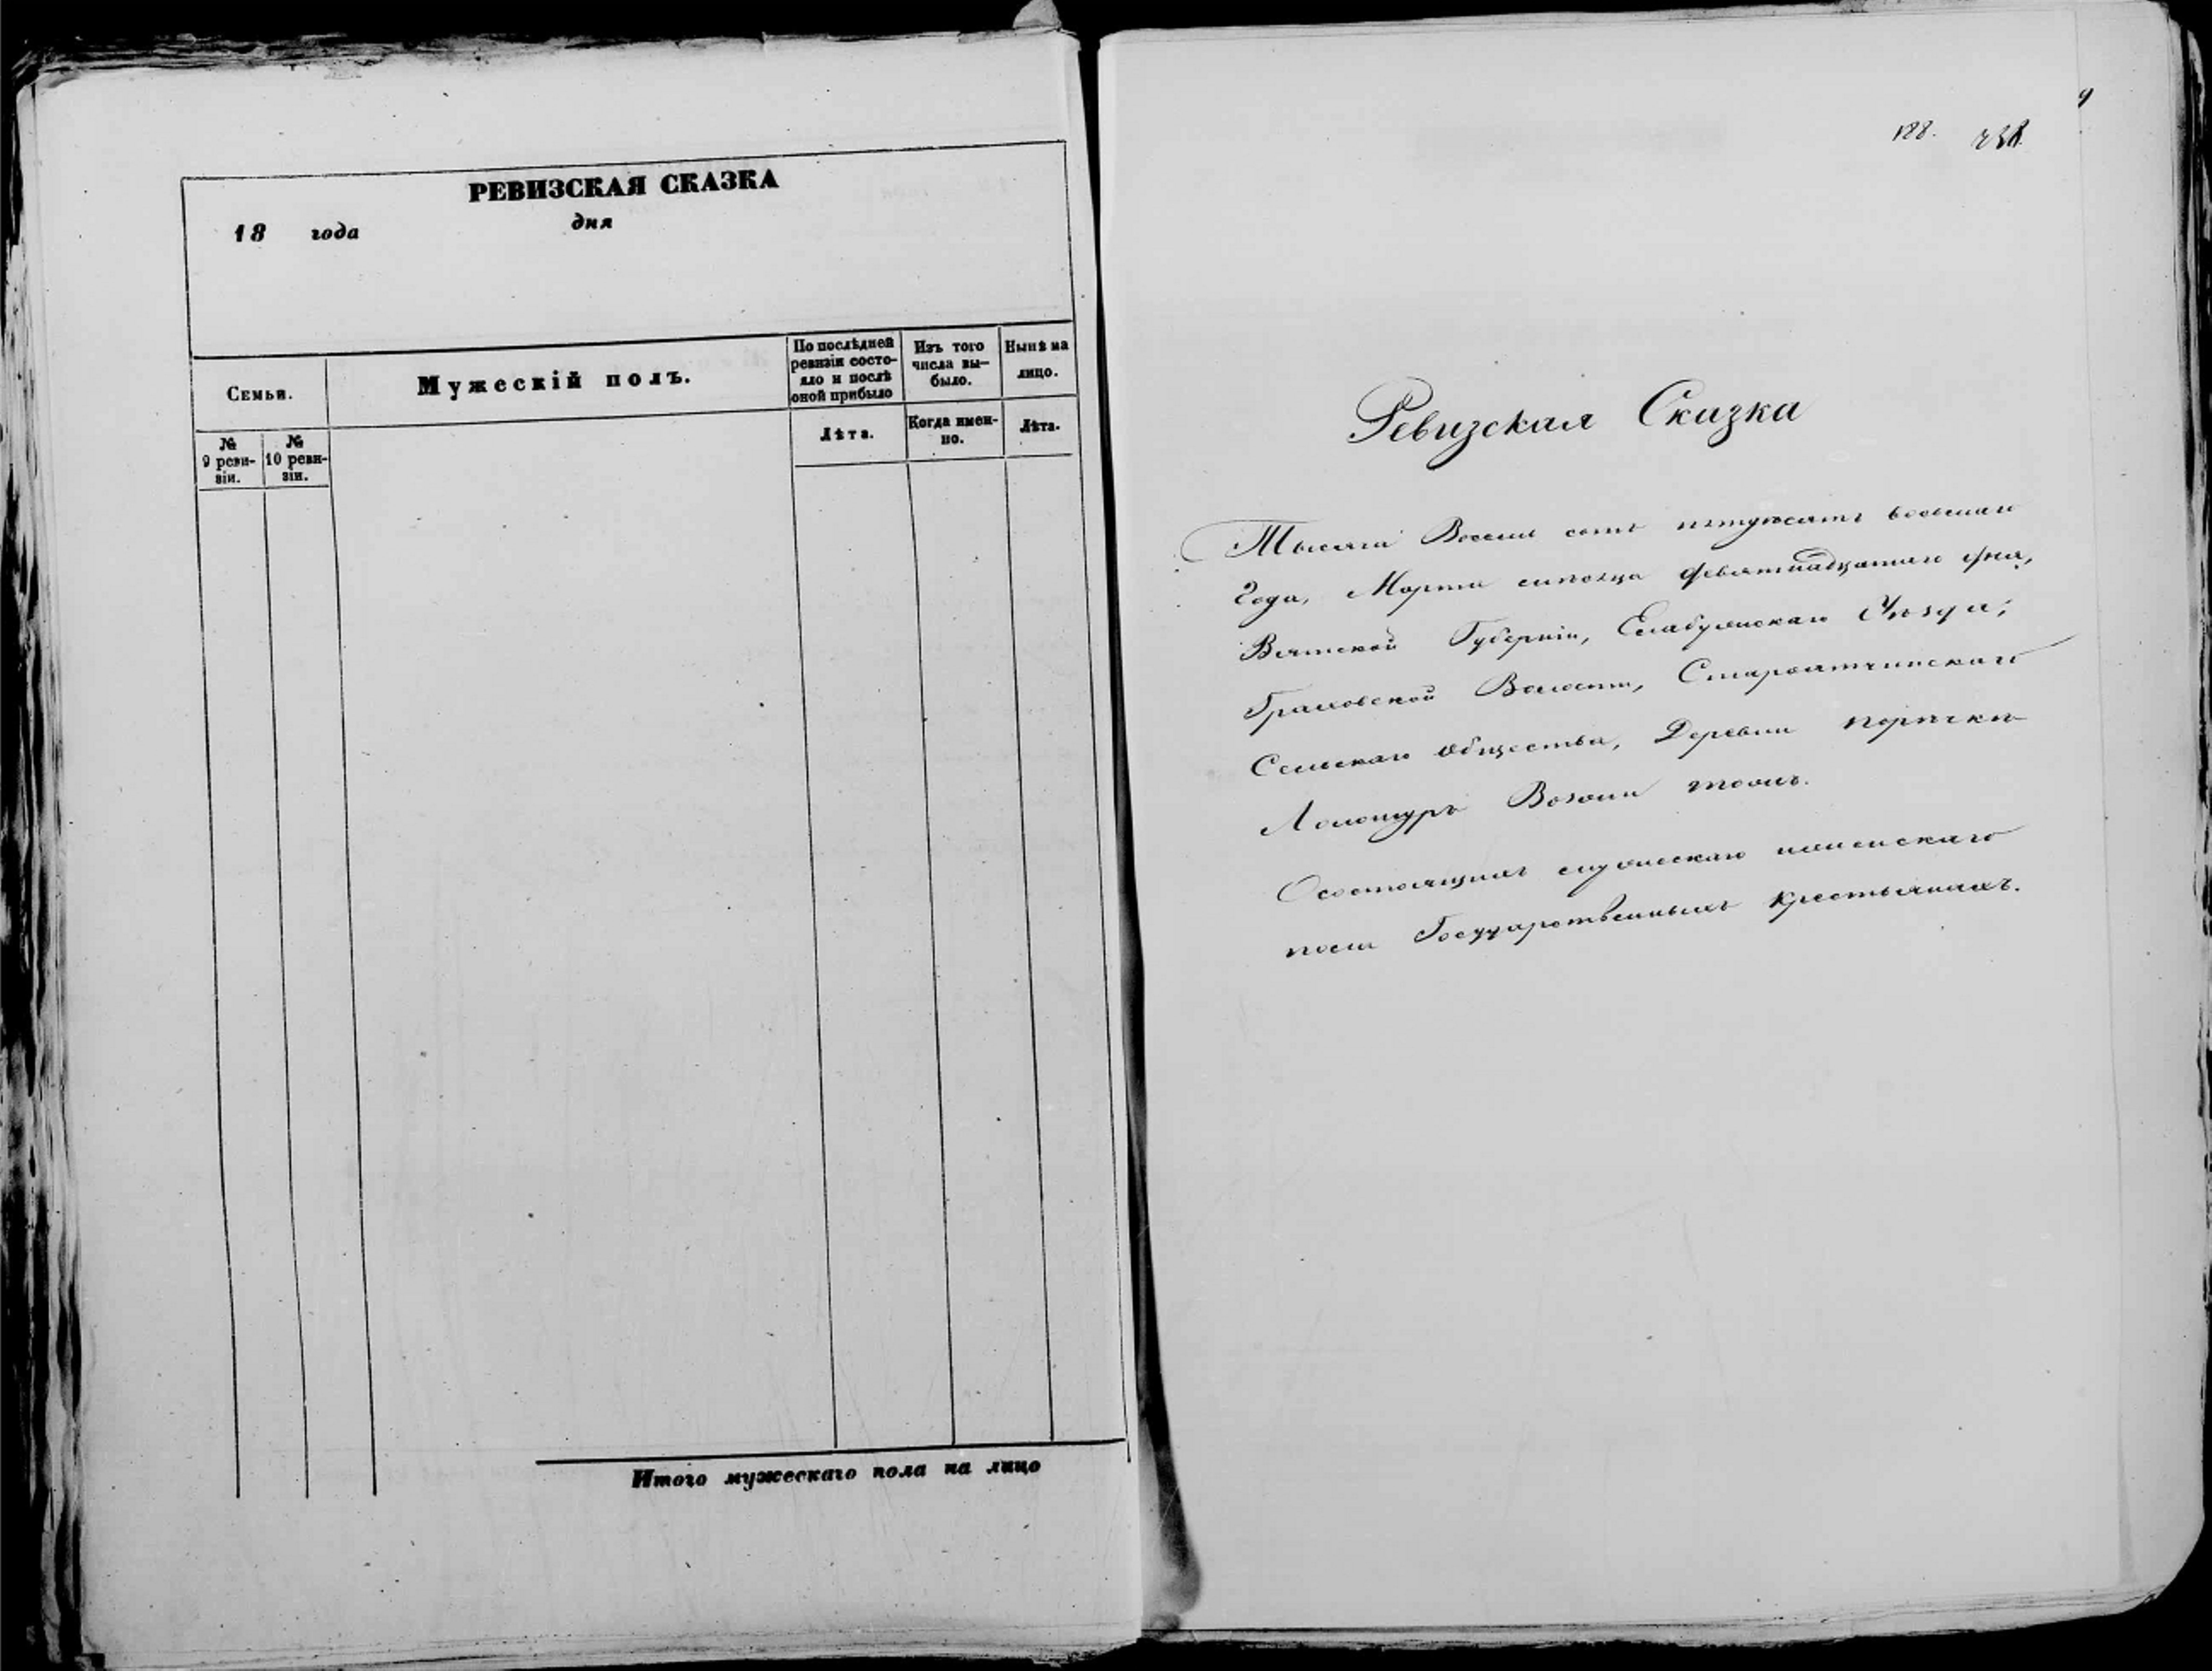 РЕВИЗСКАЯ СКАЗКА
18 года дня
Семьи.
Мужескій полъ.
По послѣдней ревизіи состояло и послѣ оной прибыло
Изъ того числа выбыло.
Нынѣ на лицо.
№ 9 ревизіи.
№ 10 ревизіи.
Лѣта.
Когда именно.
Лѣта.
Итого мужескаго пола на лицо
188. 238
Ревизская Сказка
Тысяча Восемь сотъ пятдесятъ восьмаго
Года, Марта мѣсяца девятнадцатаго дня,
Вятской Губерніи, Елабужскаго Уѣзда,
Граховской Волости, Староятчинскаго
Сельскаго общества, Деревни
тожъ.
Осостоящихъ мужескаго иженскаго
пола Государственныхъ крестьянахъ.